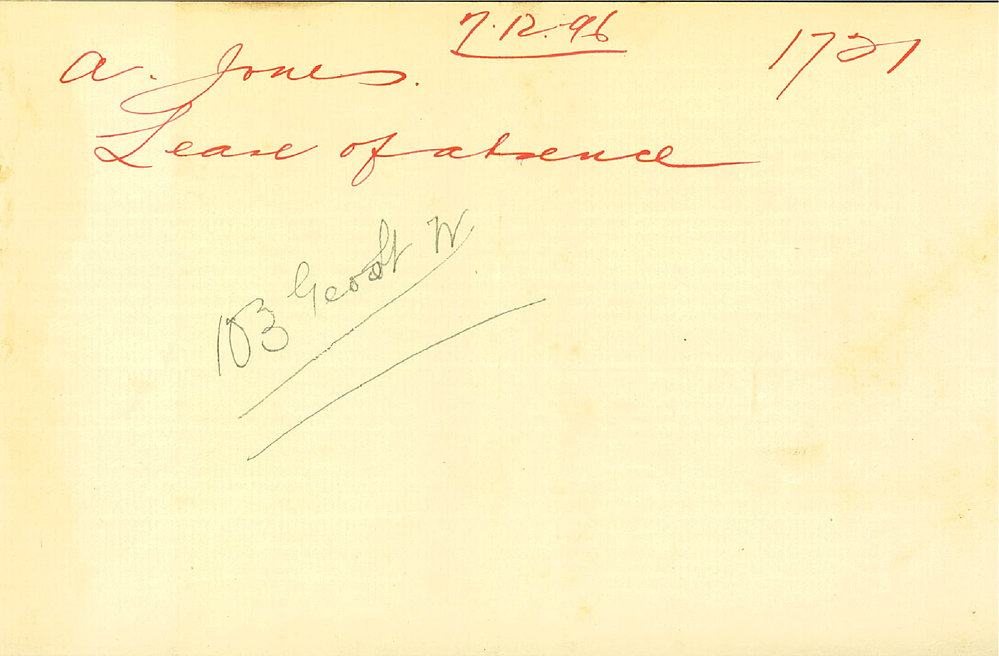 7.12.96
1721
A. Jones.
Leave of absence
103 Geo St W